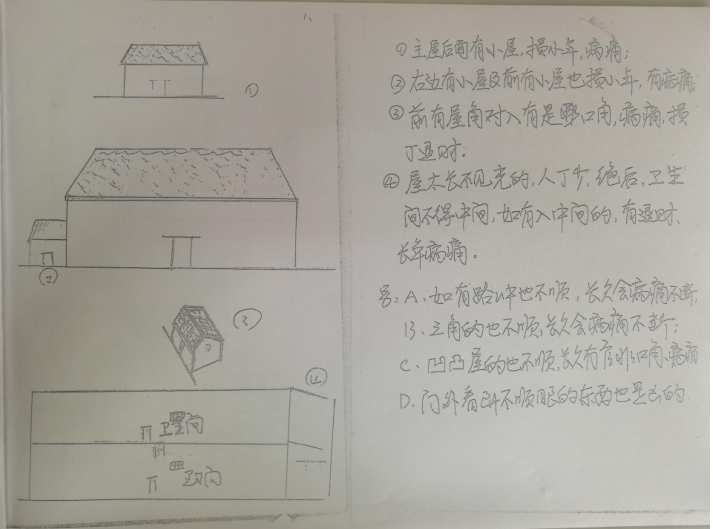 ①
②
③
④
卫生间
①主屋后面有小屋,损小年,病痛;
②右边有小屋及前有小屋也损小年,有病痛
③前有屋角对入有是非口角,病痛,损
丁退财.
④屋太长不见光的,人丁少,绝后,卫生
间不得中间,如有入中间的,有退财,
长年病痛.
A、如有路冲也不顺,长久会病痛不断,
B、三角的也不顺,长久会病痛不断;
C、凹凸屋的也不顺,长久有官非口角,病痛
D、门外看到不顺眼的东西也是凶的.